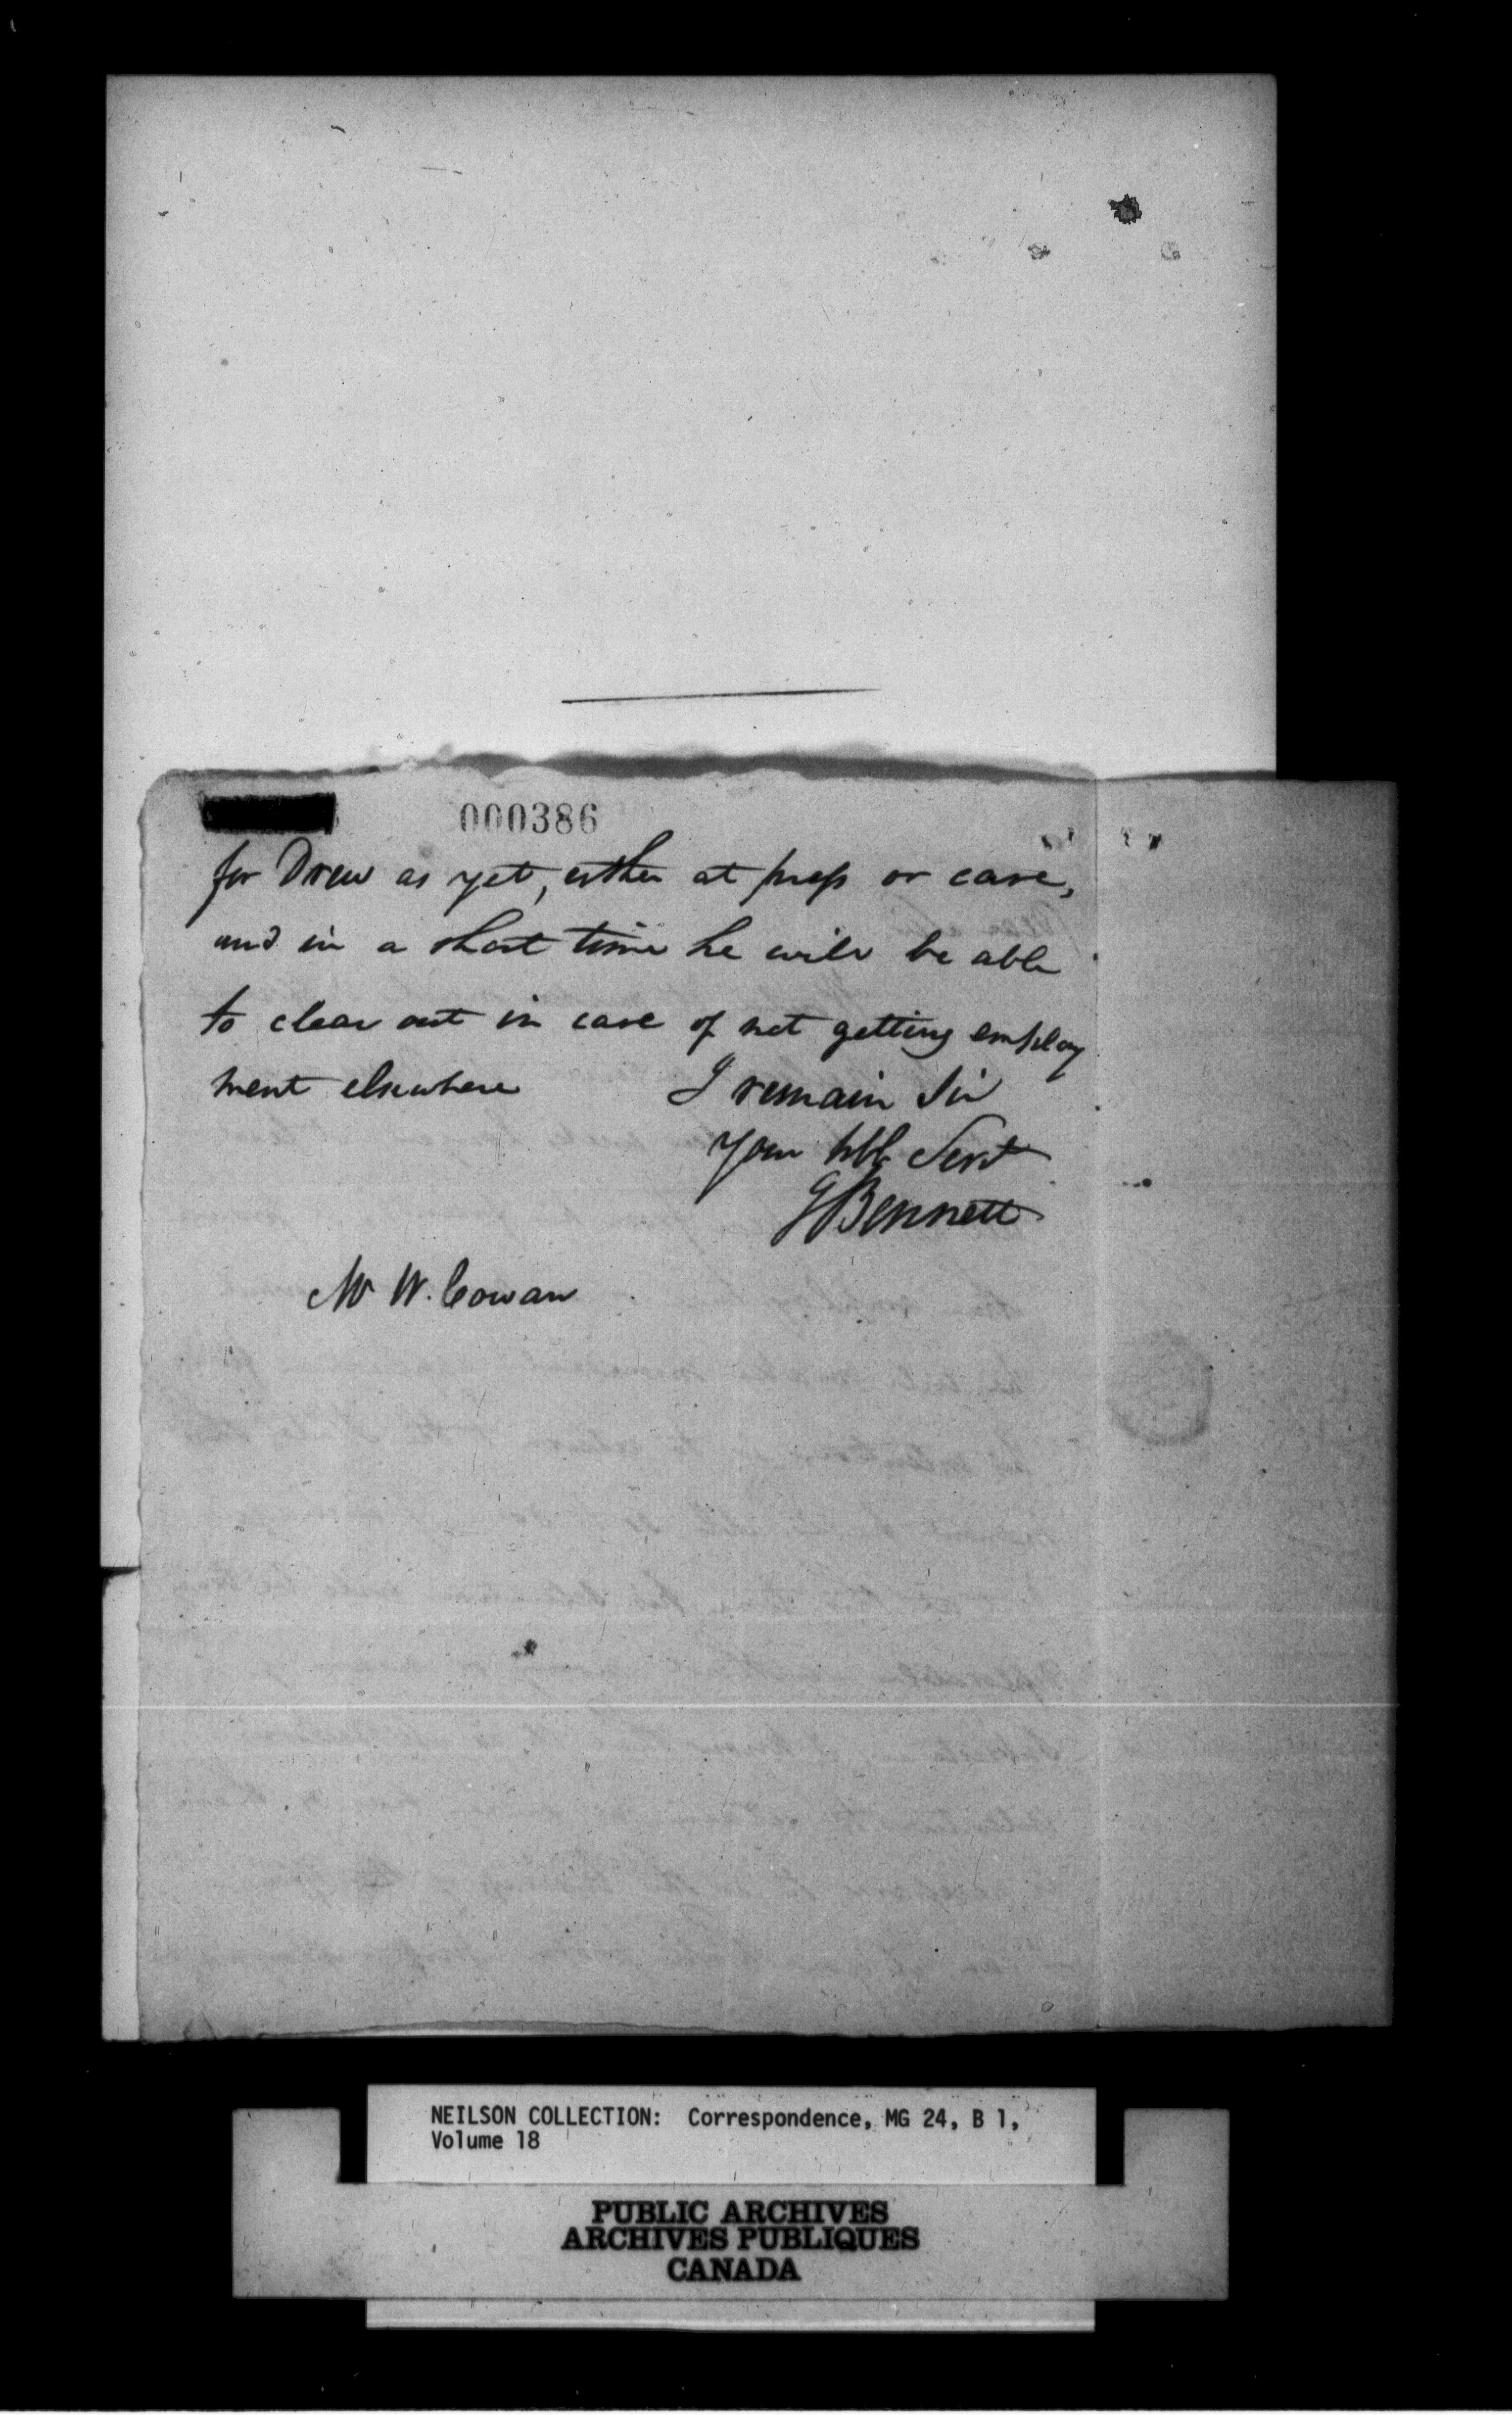 000386
for Drew as yet, either at press or case,
and in a short time he will be able
to clear out in case of not getting employ
ment elsewhere I remain Sir
Your hbl Servt
GBennett
Mr W. Cowan
NEILSON COLLECTION: Correspondence, MG 24, B 1,
Volume 18
PUBLIC ARCHIVES
ARCHIVES PUBLIQUES
CANADA